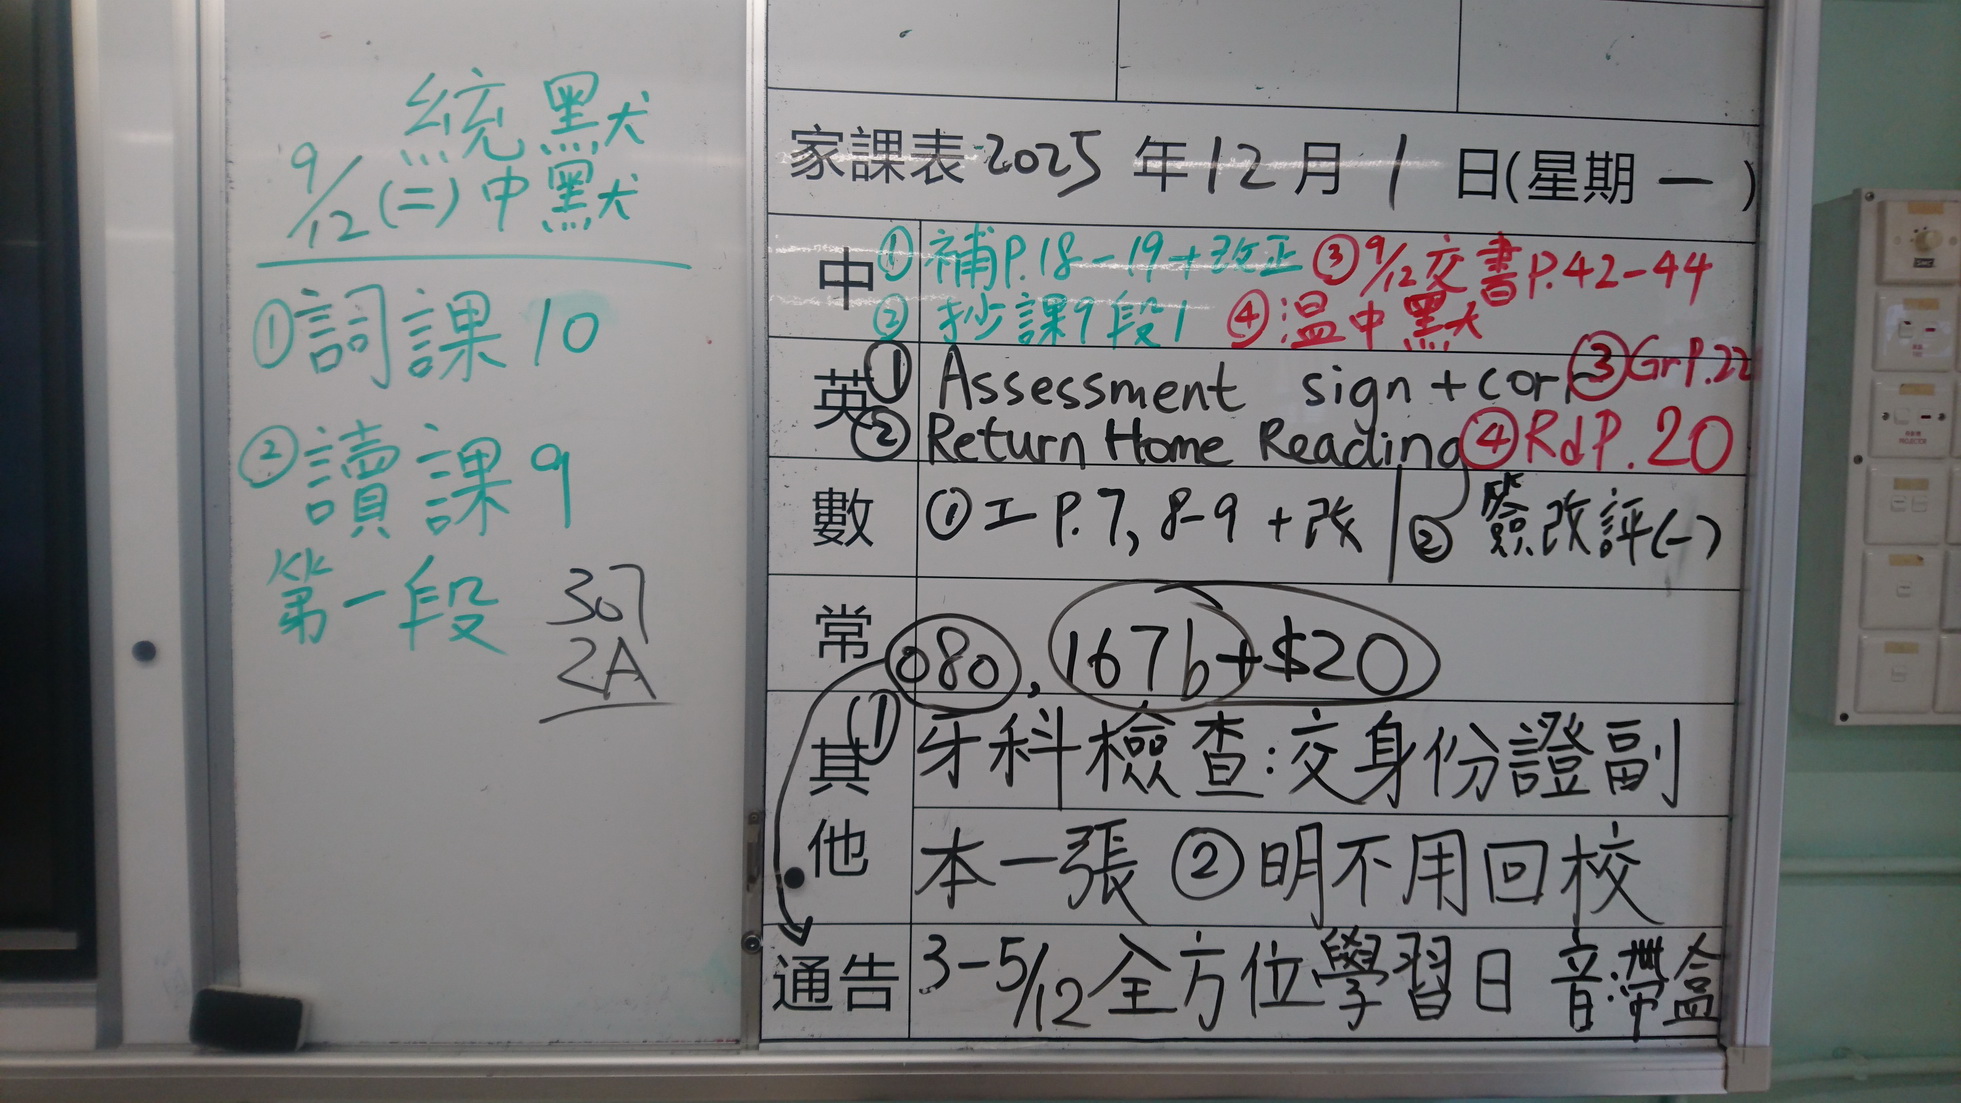 統默
9/12(二)中默
①詞課10
②讀課9
第一段
307
2A
家課表 2025年12月1日(星期一)
中 ①補P.18-19+改正 ③9/12交書P.42-44
②抄課9段1 ④溫中默
英 ①Assessment sign+cor ③GrP.22
②Return Home Reading ④RdP.20
數 ①工P.7, 8-9+改 ②簽改評(一)
常 080, 167b+$20
其他 ①牙科檢查:交身份證副
本一張 ②明不用回校
通告 3-5/12全方位學習日 音:帶盒